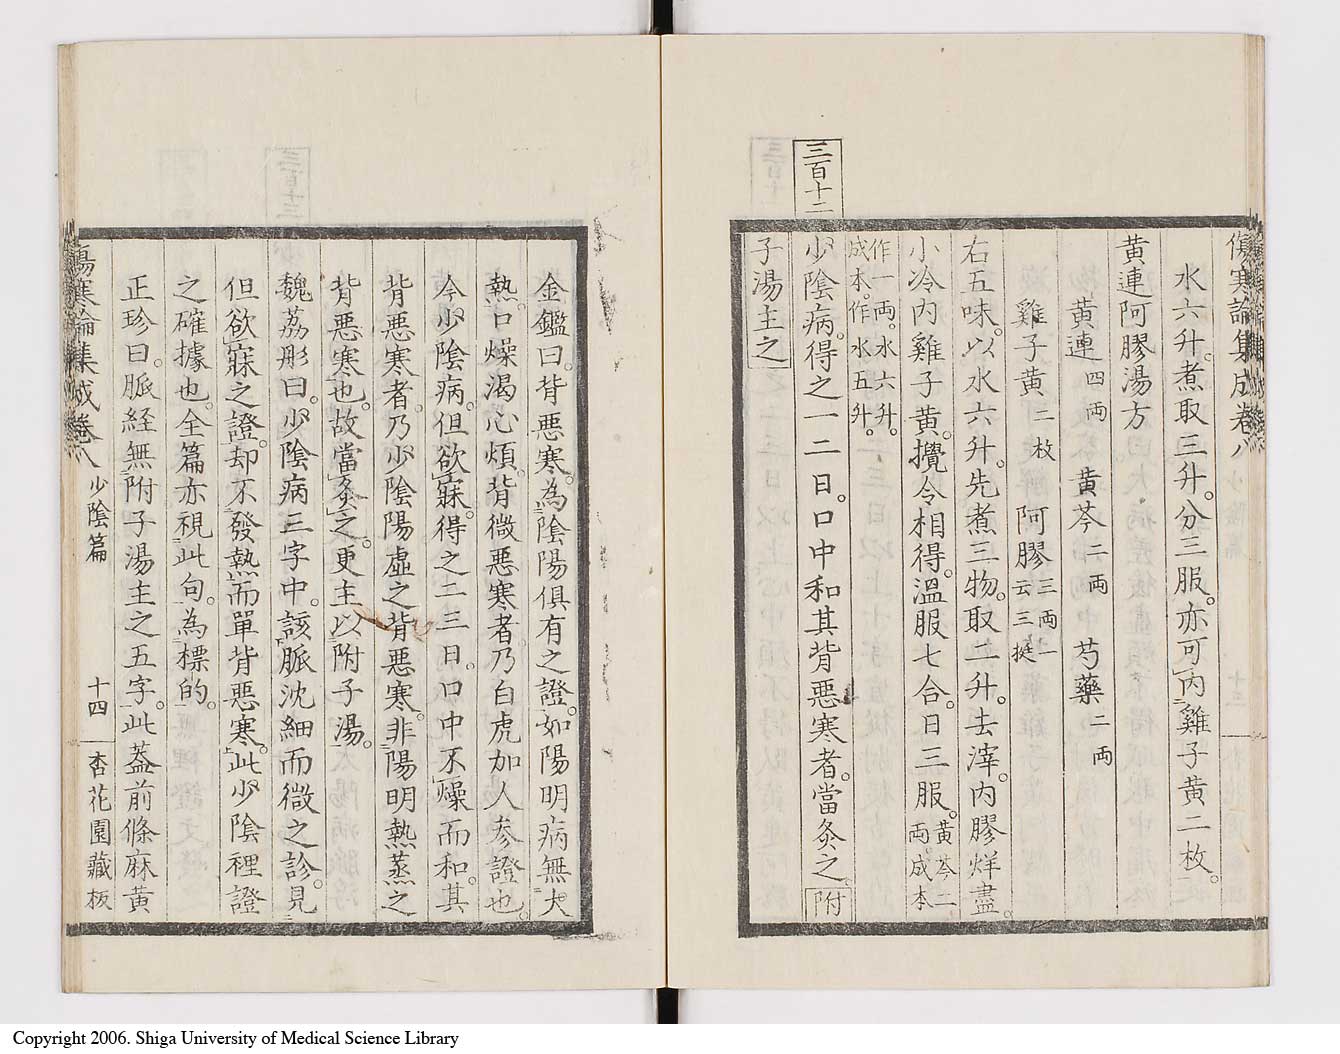 傷寒論集成卷八
水六升。煮取三升。分三服。亦可內雞子黃二枚。
黃連阿膠湯方
黃連四兩 黃芩二兩 芍藥二兩
雞子黃二枚 阿膠三兩一云三挺
右五味。以水六升。先煮三物。取二升。去滓。內膠烊盡。
小冷內雞子黃。攪令相得。溫服七合。日三服。黃芩二兩成本
作一兩。水六升。成本。作水五升。
三百十二
少陰病。得之一二日。口中和其背惡寒者。當灸之附
子湯主之
金鑑曰。背惡寒。為陰陽俱有之證。如陽明病無大
熱。口燥渴心煩。背微惡寒者。乃白虎加人參證也。
今少陰病。但欲寐。得之二三日。口中不燥而和。其
背惡寒者。乃少陰陽虛之背惡寒。非陽明熱蒸之
背惡寒也。故當灸之。更主以附子湯。
魏荔彤曰。少陰病三字中。該脈沈細而微之診。見
但欲寐之證。却不發熱而單背惡寒。此少陰裡證
之確據也。全篇亦視此句。為標的。
正珍曰。脈経無附子湯主之五字。此蓋前條麻黃
傷寒論集成卷八 少陰篇 十四 杏花園藏板
Copyright 2006. Shiga University of Medical Science Library